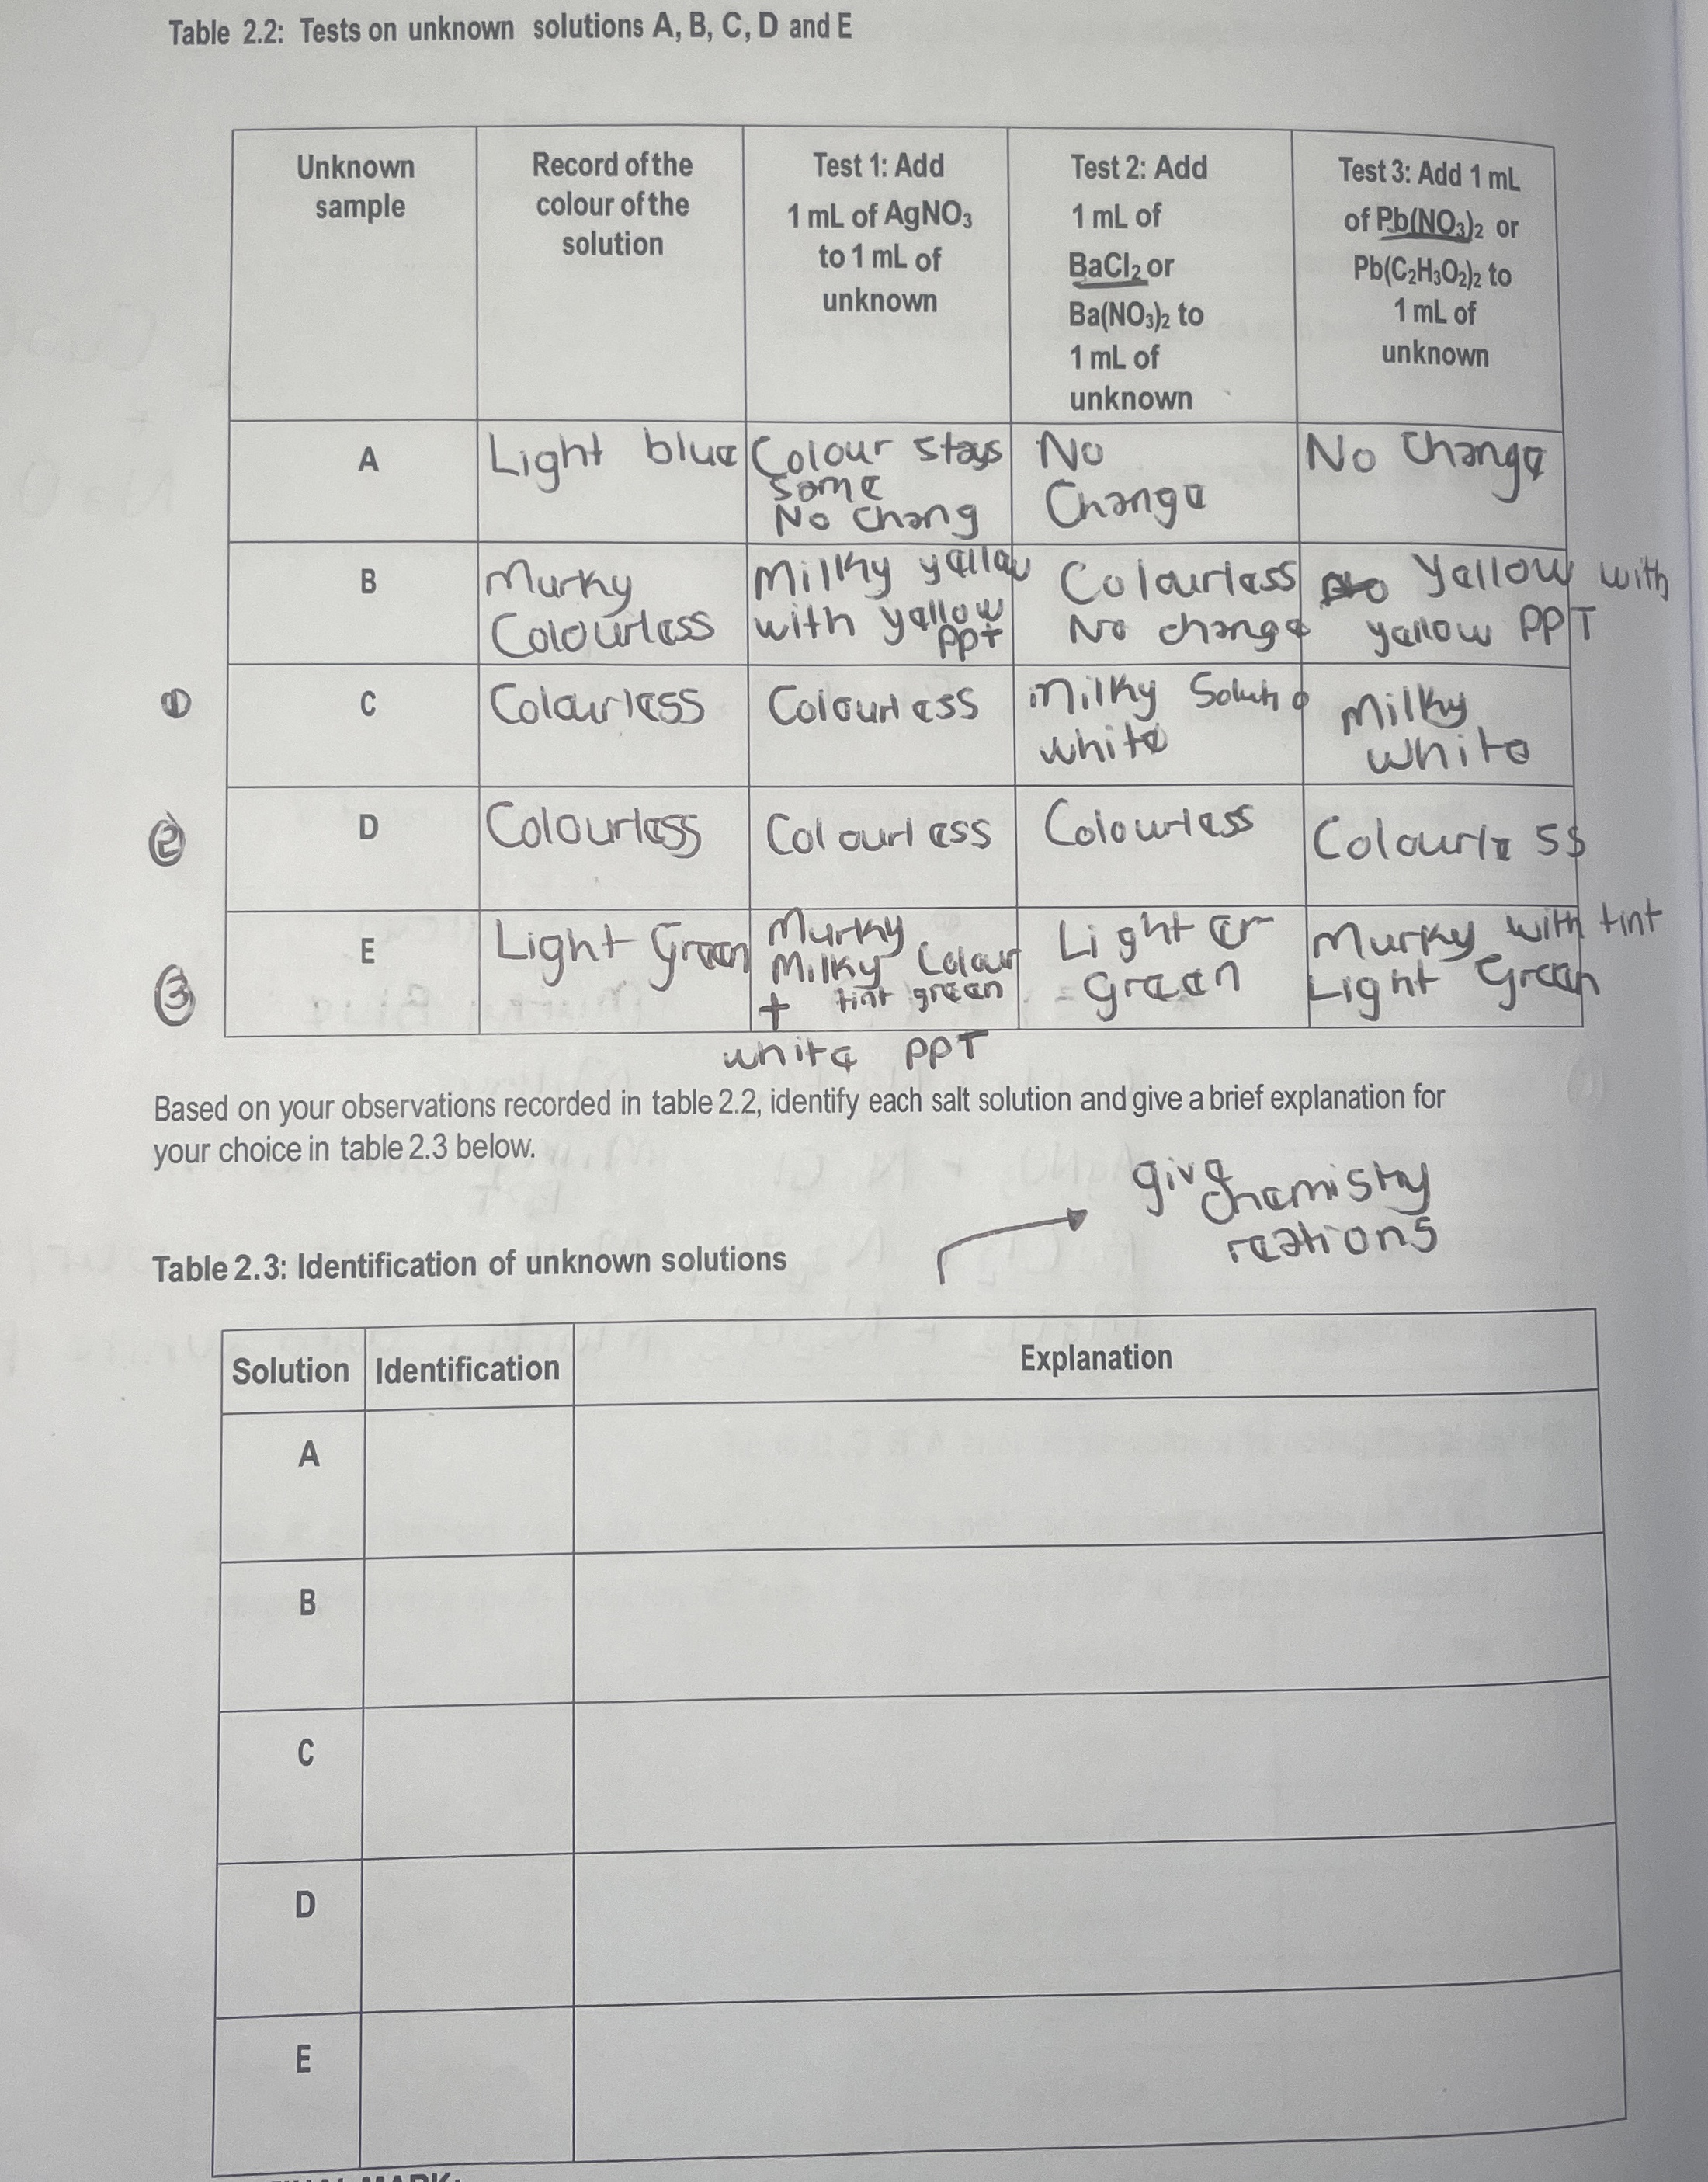 Table 2.2: Tests on unknown solutions A, B, C, D and E
Unknown
sample
Record of the
colour of the
solution
Test 1: Add
1 mL of AgNO₃
to 1 mL of
unknown
Test 2: Add
1 mL of
BaCl₂ or
Ba(NO₃)₂ to
1 mL of
unknown
Test 3: Add 1 mL
of Pb(NO₃)₂ or
Pb(C₂H₃O₂)₂ to
1 mL of
unknown
A
Light blue
Colour stays
same
No chang
No
Change
No Change
B
Murky
Colourless
Milky yellow
with yellow
PPT
Colourless
No change
Yellow with
yellow PPT
①
C
Colourless
Colourless
Milky Solutio
white
Milky
white
②
D
Colourless
Colourless
Colourless
Colourless
③
E
Light Green
Murky
Milky Colour
+ tint green
white PPT
Light Gr
green
Murky with tint
Light Green
Based on your observations recorded in table 2.2, identify each salt solution and give a brief explanation for
your choice in table 2.3 below.
give
chemistry
reations
Table 2.3: Identification of unknown solutions
Solution
Identification
Explanation
A
B
C
D
E